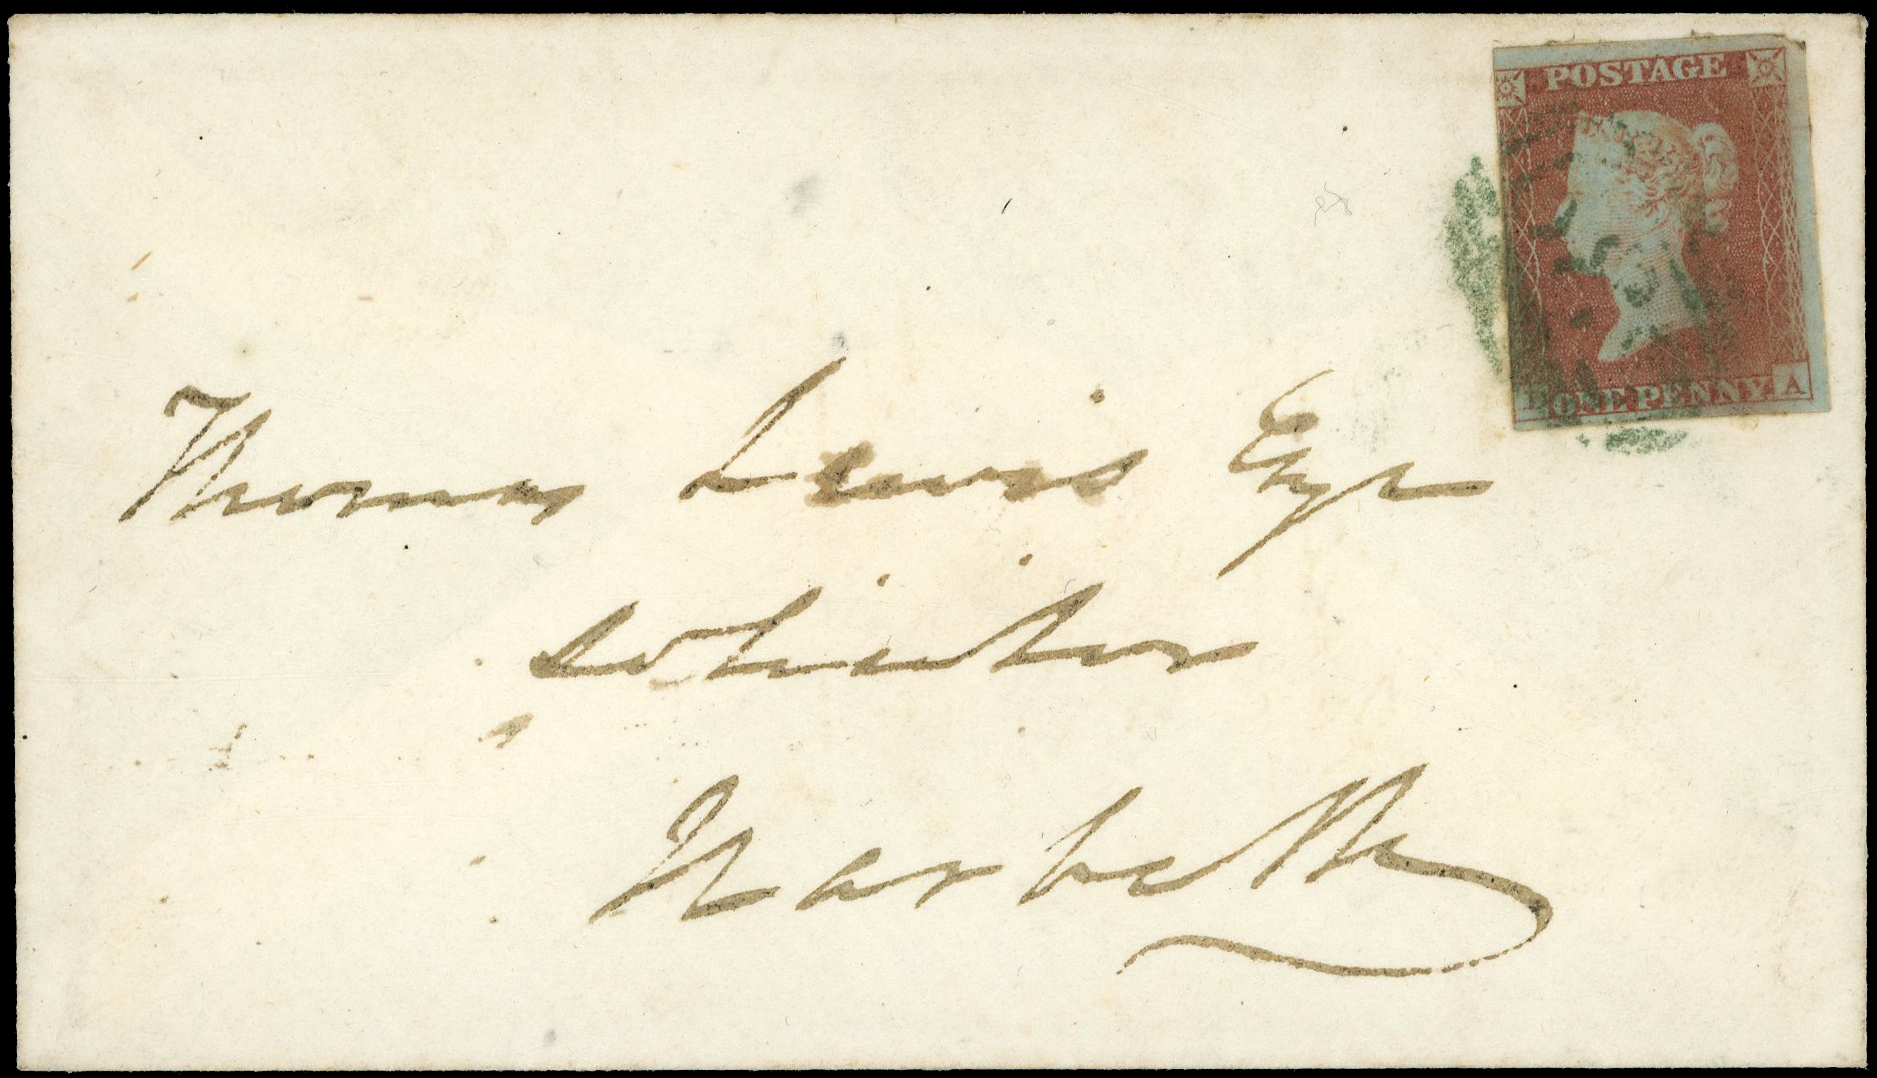 POSTAGE
ONE PENNY A
Thomas Lewis Esqr
Solicitor
Narbeth